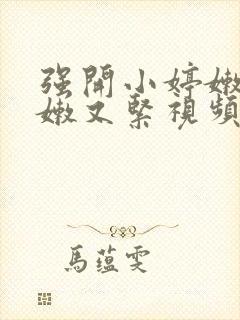 强開小婷嫩
嫩又緊視頻
馬蕴雯